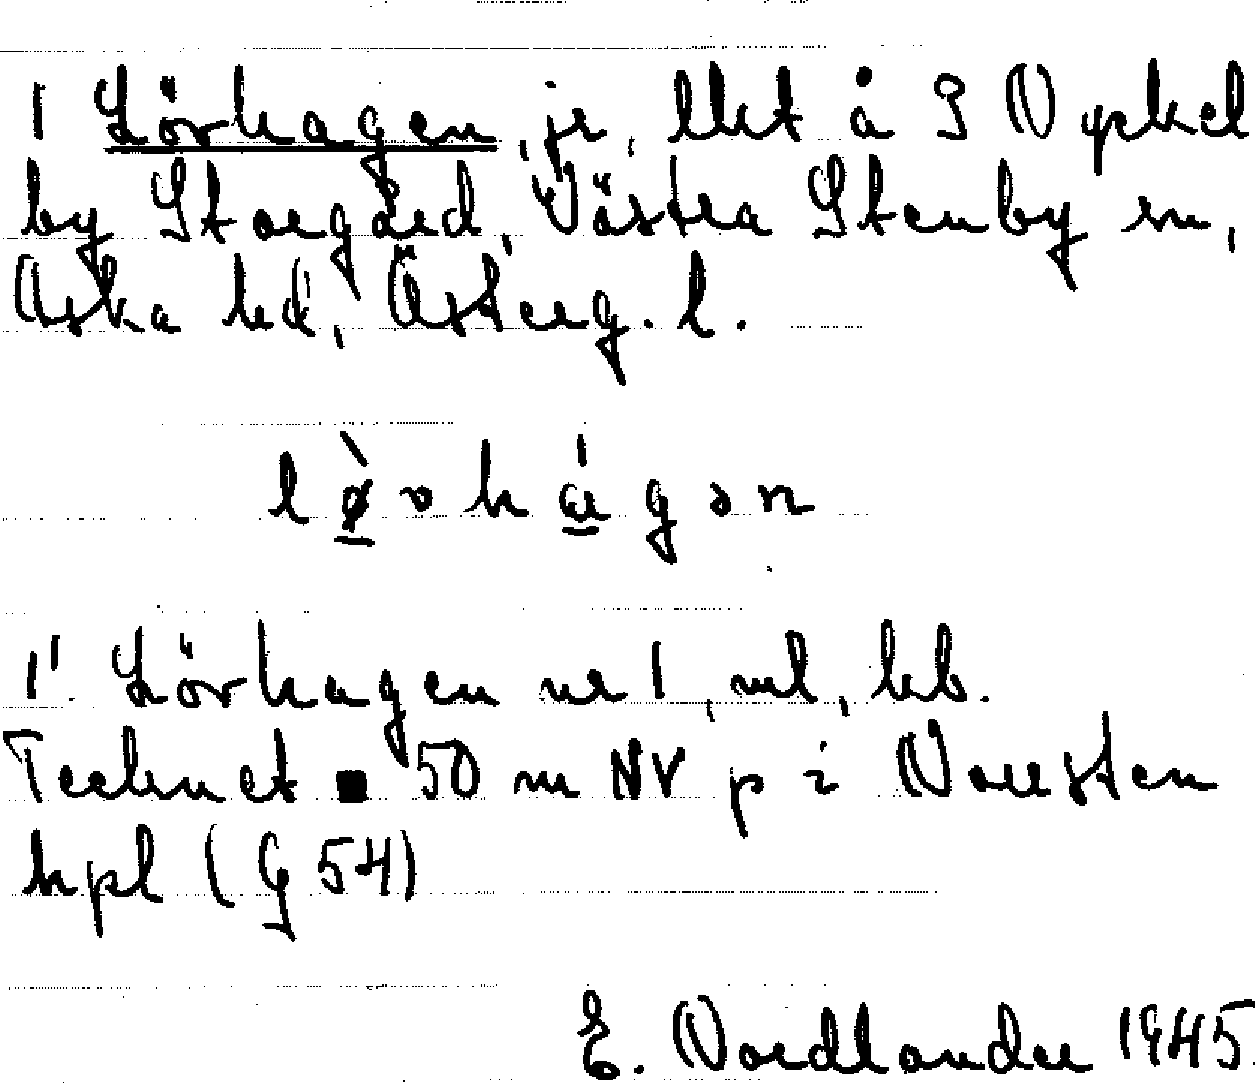 1 Lövhagen, jr, lht å S Nyckel
by Storgård, Västra Stenby sn,
Aska hd, Österg. l.
lø̀vhágən
1' Lövhagen nr 1, ml, bb.
Tecknet ■ 50 m NV p i Norrsten
hpl (G 54)
E. Nordlander 1945.